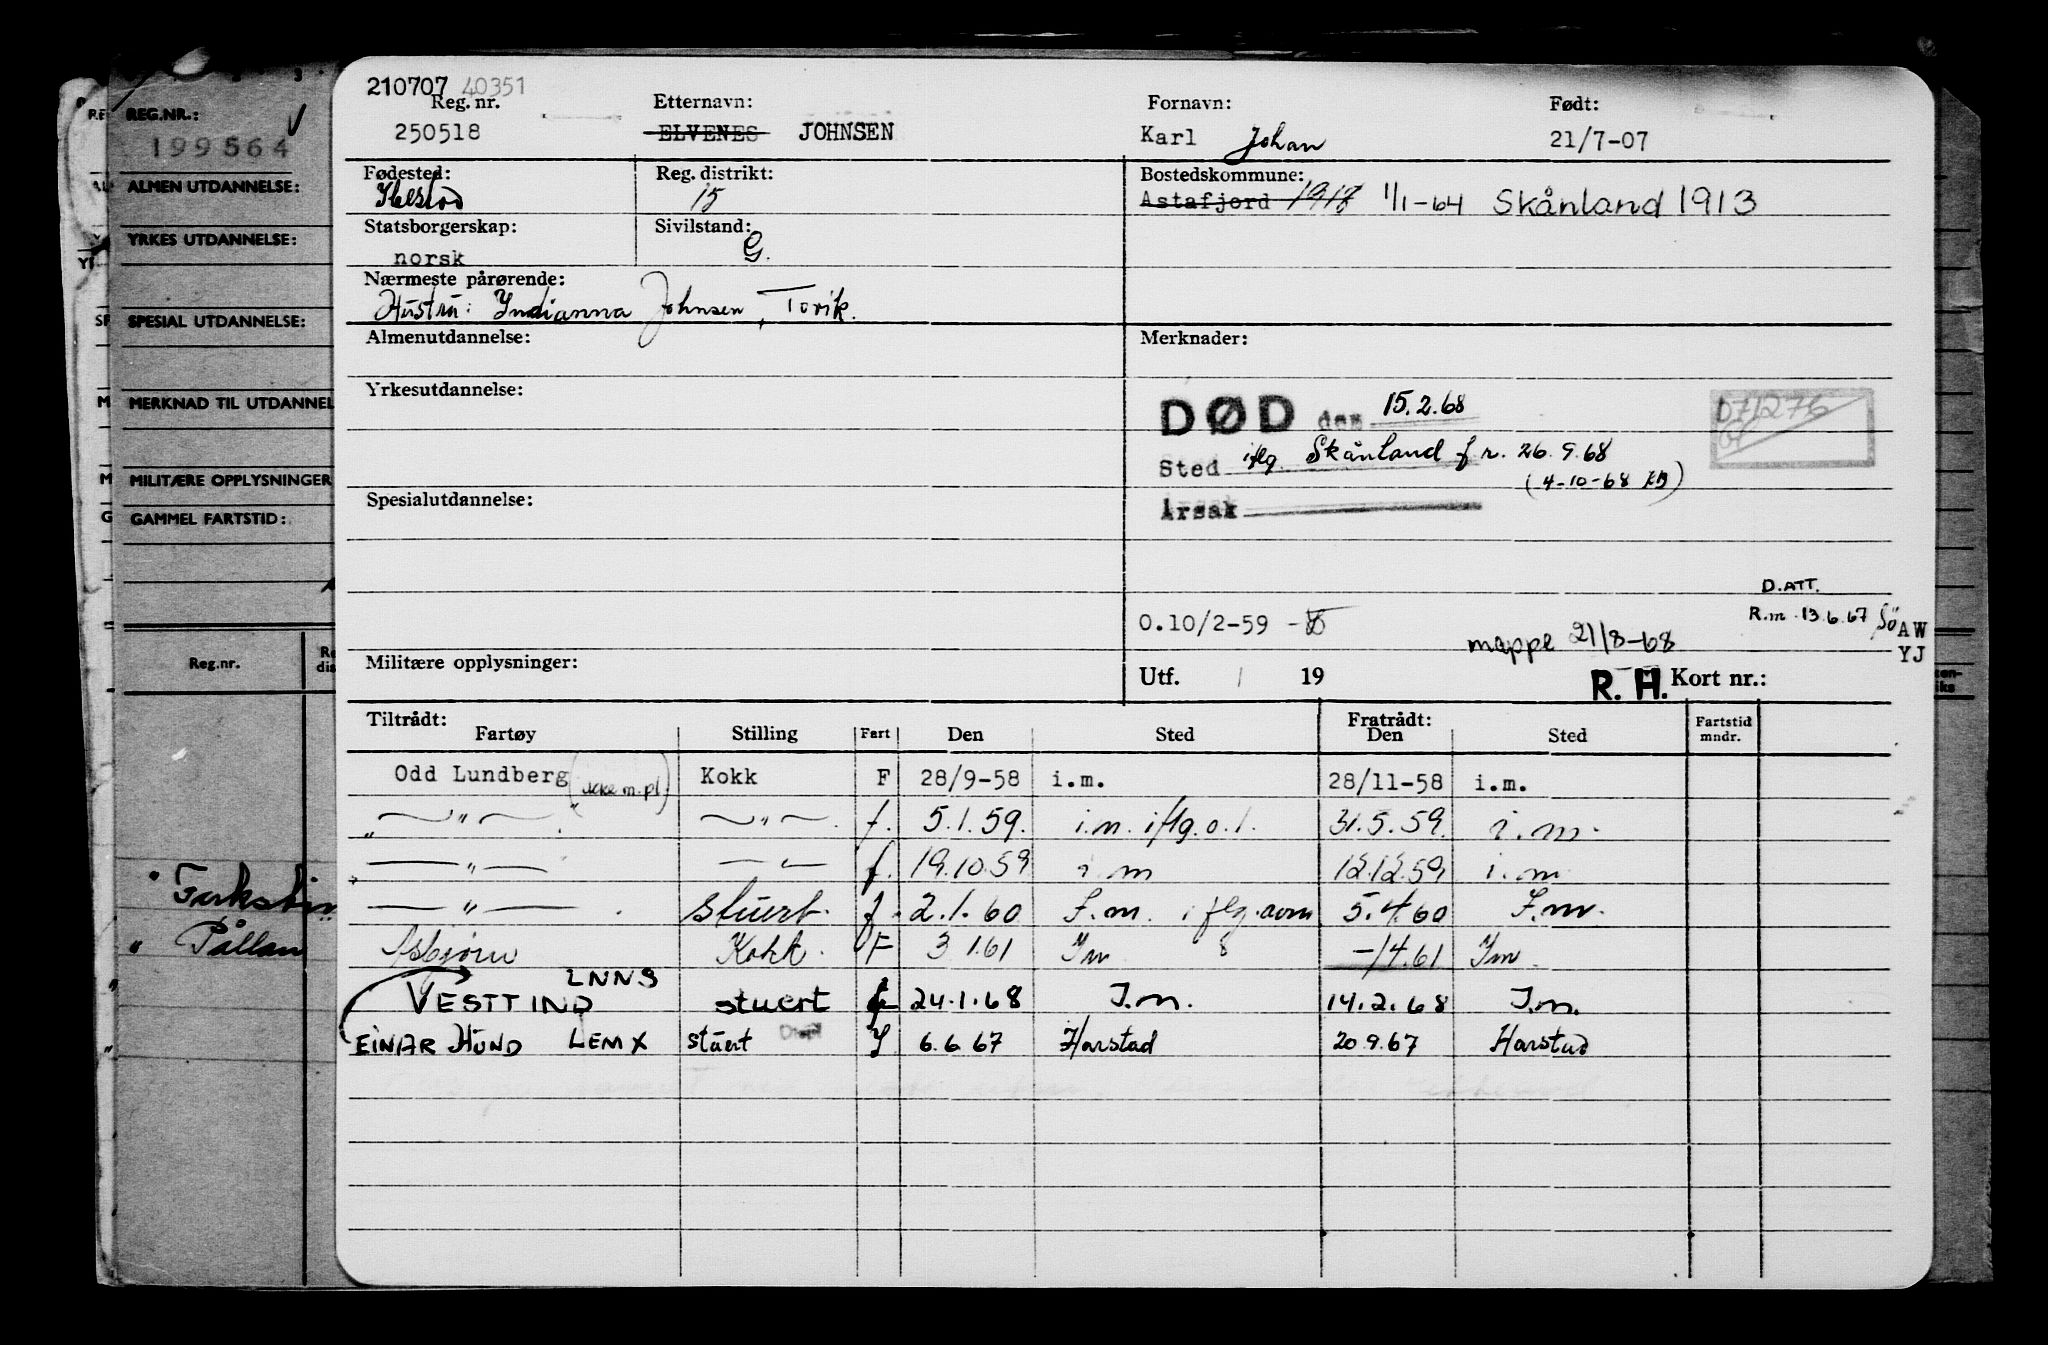 210707 40351
Reg. nr. Etternavn: Fornavn: Født:
250518 ELVENES JOHNSEN Karl Johan 21/7-07
Fødested: Reg. distrikt: Bostedskommune:
Ibestad 15 Astafjord 1918 1/1-64 Skånland 1913
Statsborgerskap: Sivilstand:
norsk G.
Nærmeste pårørende:
Hustru: Indianna Johnsen, Tovik.
Almenutdannelse: Merknader:
Yrkesutdannelse:
DØD den 15.2.68
D71276
Sted iflg. Skånland f r. 26.9.68
(4-10-68 )
Spesialutdannelse:
Årsak
D.ATT.
O.10/2-59 R.m 13.6.67 Sö
mappe 21/8-68 AW
YJ
Militære opplysninger: Utf. / 19 R. H. Kort nr.:
Tiltrådt: Fratrådt: Fartstid
Fartøy Stilling Fart Den Sted Den Sted mndr.
Odd Lundberg (ikke m.pl) Kokk F 28/9-58 i.m. 28/11-58 i.m.
— " — — " — f. 5.1.59. i.m. iflg.o.l. 31.5.59. i.m.
— " — — " — f. 19.10.59 i.m 12.12.59 i.m
— " — stuert. f. 2.1.60 I.m. iflg. 5.4.60 I.m.
Asbjørn Kokk. F 3 1.61 Im 8 -/4.61 Im.
VESTTIND LNNS stuert f 24.1.68 I.m. 14.2.68 I.m.
EINAR HUND LEMX stuert Y 6.6.67 Harstad 20.9.67 Harstad
REG.NR.:
199564
ALMEN UTDANNELSE:
YRKES UTDANNELSE:
SPESIAL UTDANNELSE:
MERKNAD TIL UTDANNEL
MILITÆRE OPPLYSNINGER
GAMMEL FARTSTID:
Reg.nr.
" Pållan